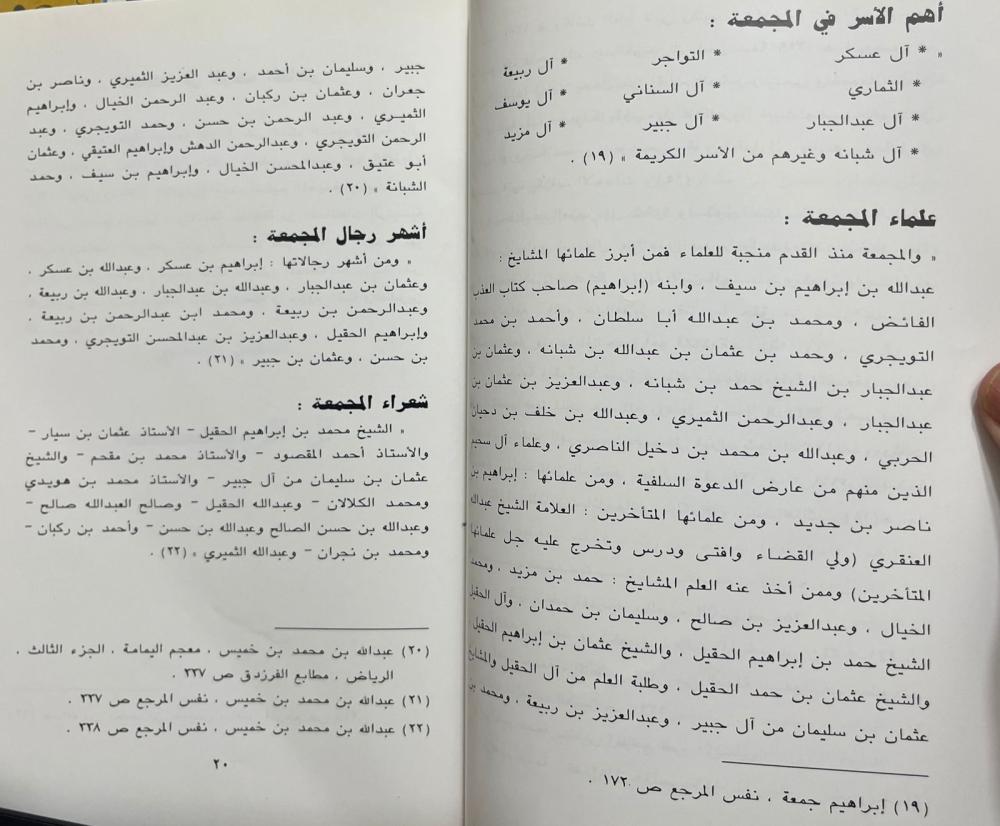 أهم الأسر في المجمعة :
« * آل عسكر * التواجر * آل ربيعة
* الثماري * آل السناني * آل يوسف
* آل عبدالجبار * آل جبير * آل مزيد
* آل شبانه وغيرهم من الأسر الكريمة » (١٩) .
علماء المجمعة :
« والمجمعة منذ القدم منجبة للعلماء فمن أبرز علمائها المشايخ :
عبدالله بن إبراهيم بن سيف ، وابنه (إبراهيم) صاحب كتاب العذب
الفائض ، ومحمد بن عبدالله أبا سلطان ، وأحمد بن محمد
التويجري ، وحمد بن عثمان بن عبدالله بن شبانه ، وعثمان بن
عبدالجبار بن الشيخ حمد بن شبانه ، وعبدالعزيز بن عثمان بن
عبدالجبار ، وعبدالرحمن الثميري ، وعبدالله بن خلف بن دحيان
الحربي ، وعبدالله بن محمد بن دخيل الناصري ، وعلماء آل سحيم
الذين منهم من عارض الدعوة السلفية ، ومن علمائها : إبراهيم بن
ناصر بن جديد ، ومن علمائها المتأخرين : العلامة الشيخ عبدالله
العنقري (ولي القضاء وافتى ودرس وتخرج عليه جل علمائها
المتأخرين) وممن أخذ عنه العلم المشايخ : حمد بن مزيد ، ومحمد
الخيال ، وعبدالعزيز بن صالح ، وسليمان بن حمدان ، وآل الحقيل
الشيخ حمد بن إبراهيم الحقيل ، والشيخ عثمان بن إبراهيم الحقيل
والشيخ عثمان بن حمد الحقيل ، وطلبة العلم من آل الحقيل والمشايخ
عثمان بن سليمان من آل جبير ، وعبدالعزيز بن ربيعة ، ومحمد بن
(١٩) إبراهيم جمعة ، نفس المرجع ص ١٧٢ .
جبير ، وسليمان بن أحمد ، وعبد العزيز الثميري ، وناصر بن
جعران ، وعثمان بن ركبان ، وعبد الرحمن الخيال ، وإبراهيم
الثميري ، وعبد الرحمن بن حسن ، وحمد التويجري ، وعبد
الرحمن التويجري ، وعبدالرحمن الدهش وإبراهيم العتيقي ، وعثمان
أبو عتيق ، وعبدالمحسن الخيال ، وإبراهيم بن سيف ، وحمد
الشبانة » (٢٠) .
أشهر رجال المجمعة :
« ومن أشهر رجالاتها : إبراهيم بن عسكر ، وعبدالله بن عسكر ،
وعثمان بن عبدالجبار ، وعبدالله بن عبدالجبار ، وعبدالله بن ربيعة ،
وعبدالرحمن بن ربيعة ، ومحمد ابن عبدالرحمن بن ربيعة ،
وإبراهيم الحقيل ، وعبدالعزيز بن عبدالمحسن التويجري ، ومحمد
بن حسن ، وعثمان بن جبير » (٢١) .
شعراء المجمعة :
« الشيخ محمد بن إبراهيم الحقيل – الأستاذ عثمان بن سيار –
والأستاذ أحمد المقصود – والأستاذ محمد بن مقحم – والشيخ
عثمان بن سليمان من آل جبير – والأستاذ محمد بن هويدي
ومحمد الكلالان – وعبدالله الحقيل – وصالح العبدالله صالح –
وعبدالله بن حسن الصالح وعبدالله بن حسن – وأحمد بن ركبان –
ومحمد بن نجران – وعبدالله الثميري » (٢٢) .
(٢٠) عبدالله بن محمد بن خميس ، معجم اليمامة ، الجزء الثالث ،
الرياض ، مطابع الفرزدق ص ٣٣٧ .
(٢١) عبدالله بن محمد بن خميس ، نفس المرجع ص ٣٣٧ .
(٢٢) عبدالله بن محمد بن خميس ، نفس المرجع ص ٣٣٨ .
٢٠